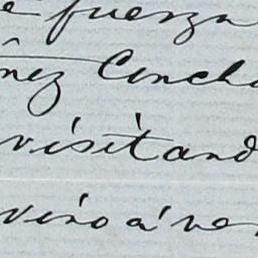 e fuerza
ñez Concha
visitand
vino a ver